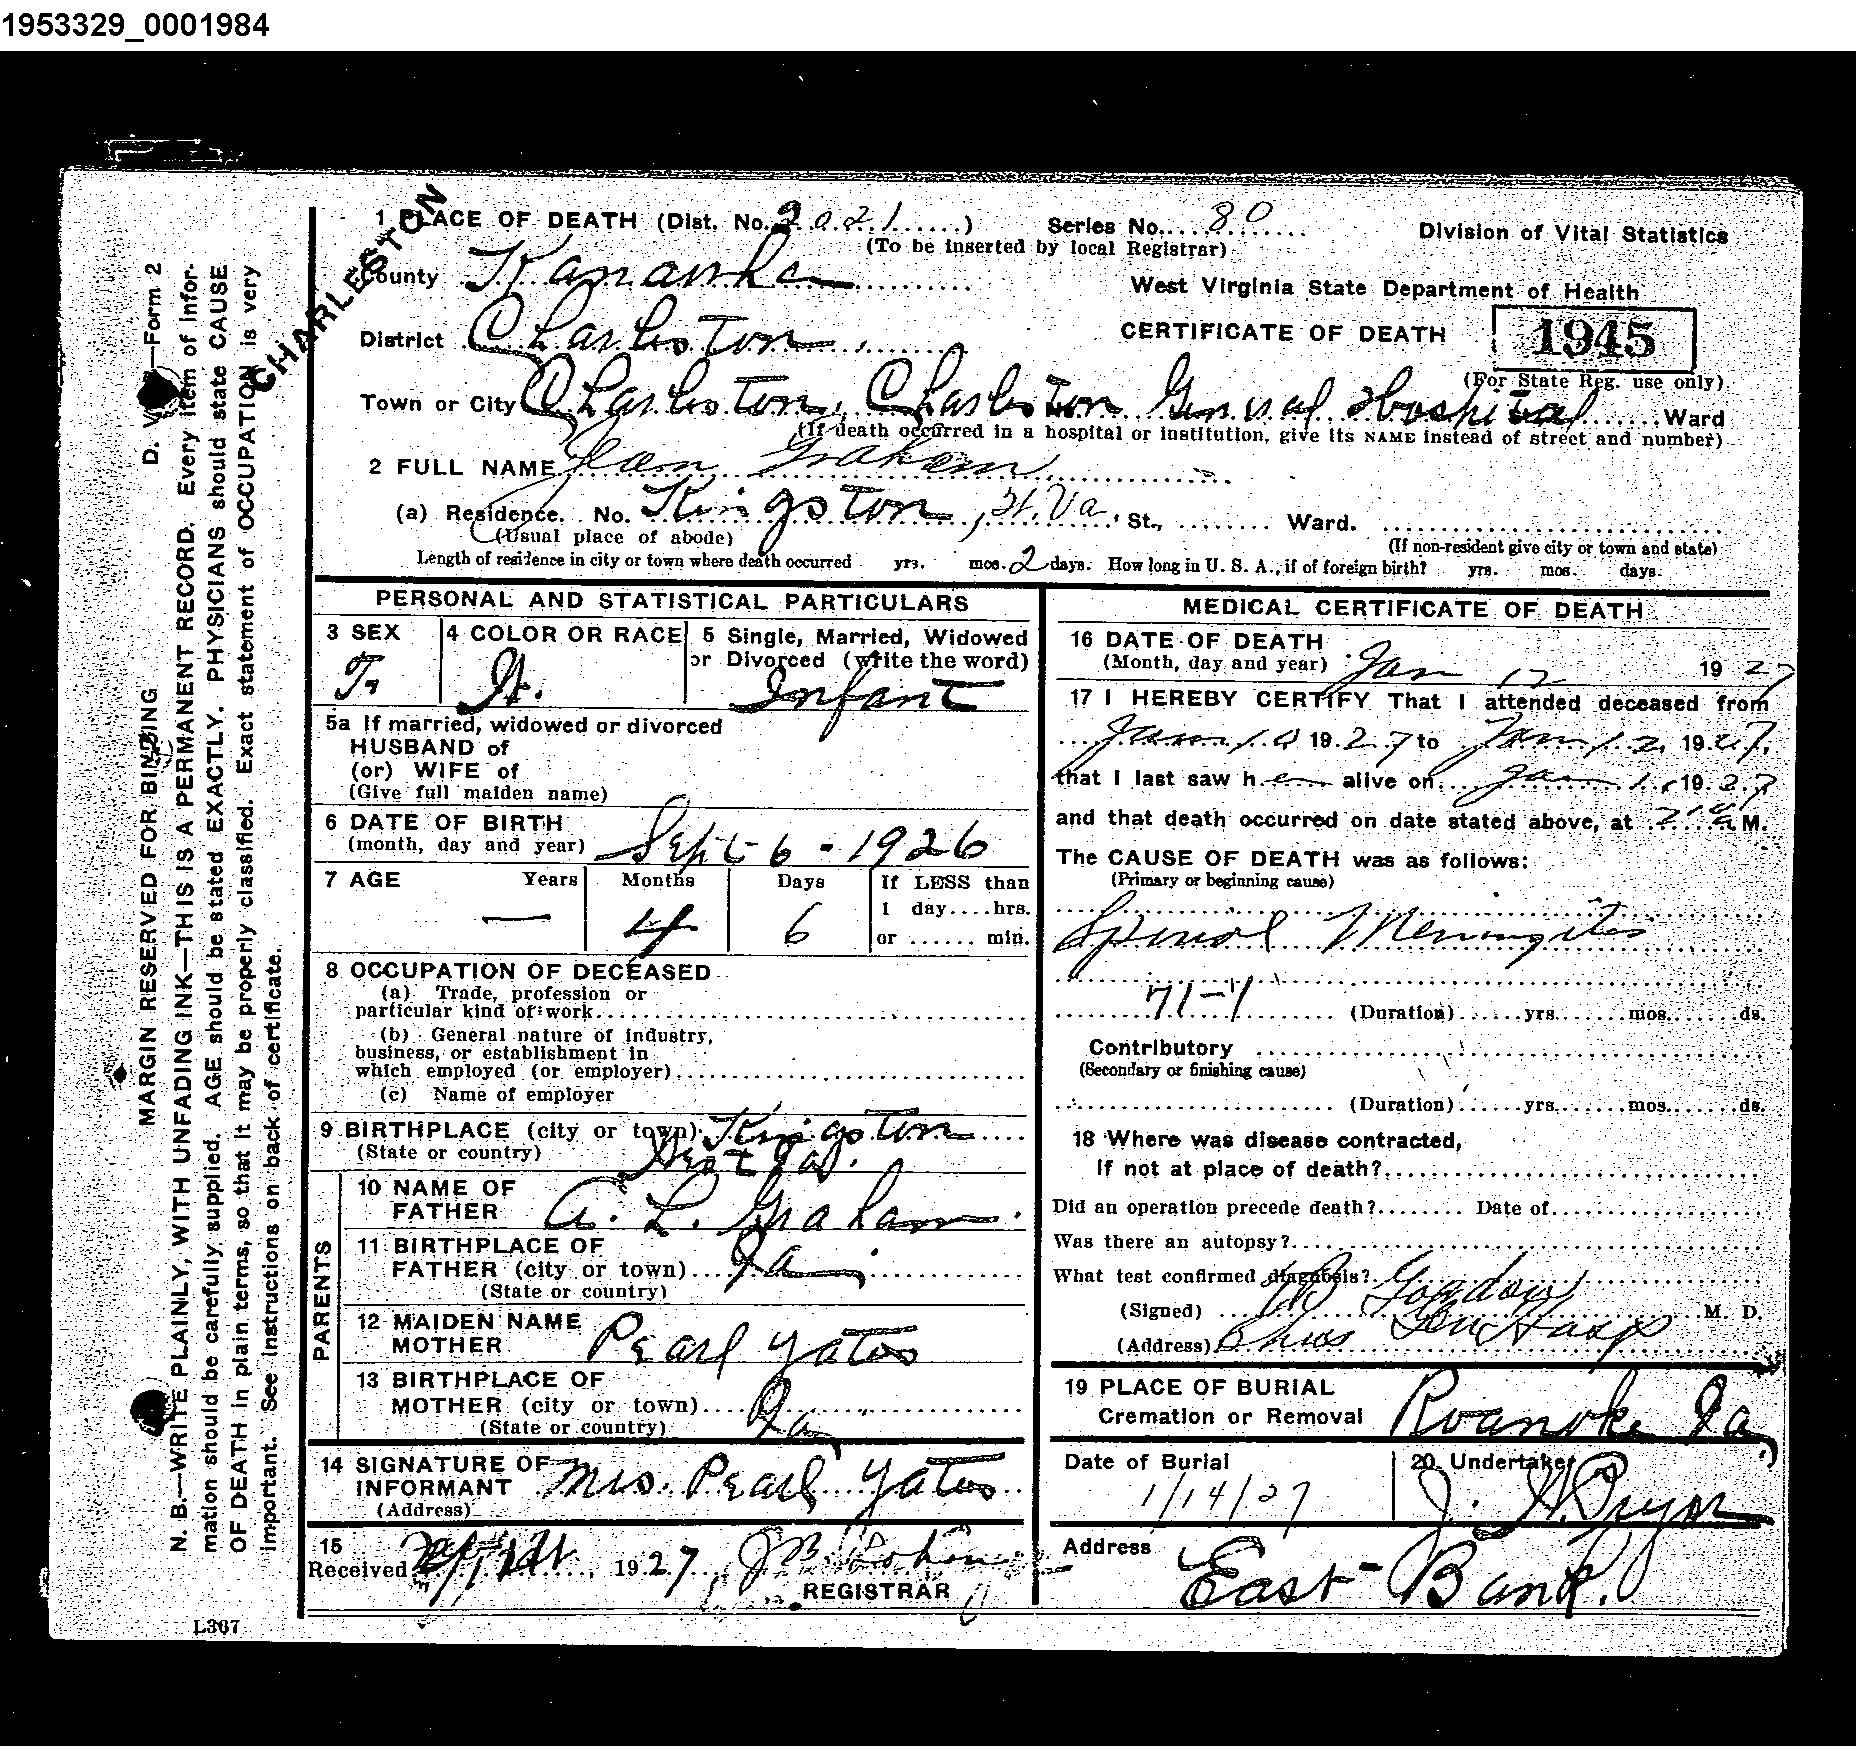 1953329_0001984
CHARLESTON
1 PLACE OF DEATH (Dist. No. 2021) Series No. 80 Division of Vital Statistics
(To be inserted by local Registrar)
County Kanawha West Virginia State Department of Health
District Charleston CERTIFICATE OF DEATH 1945
(For State Reg. use only)
Town or City Charleston, Charleston General Hospital Ward
(If death occurred in a hospital or institution, give its NAME instead of street and number)
2 FULL NAME Jean Graham
(a) Residence. No. Kingston, W.Va. St., ........ Ward.
(Usual place of abode) (If non-resident give city or town and state)
Length of residence in city or town where death occurred yrs. mos. 2 days. How long in U. S. A., if of foreign birth? yrs. mos. days.
PERSONAL AND STATISTICAL PARTICULARS
3 SEX 4 COLOR OR RACE 5 Single, Married, Widowed
or Divorced (write the word)
F. W. Infant
5a If married, widowed or divorced
HUSBAND of
(or) WIFE of
(Give full maiden name)
6 DATE OF BIRTH
(month, day and year) Sept 6 - 1926
7 AGE Years Months Days If LESS than
1 day....hrs.
— 4 6 or ...... min.
8 OCCUPATION OF DECEASED
(a) Trade, profession or
particular kind of work
(b) General nature of industry,
business, or establishment in
which employed (or employer)
(c) Name of employer
9 BIRTHPLACE (city or town) Kingston
(State or country) West Va.
PARENTS
10 NAME OF
FATHER A. L. Graham
11 BIRTHPLACE OF
FATHER (city or town) Va
(State or country)
12 MAIDEN NAME
MOTHER Pearl Yates
13 BIRTHPLACE OF
MOTHER (city or town)
(State or country) Va
14 SIGNATURE OF
INFORMANT Mrs. Pearl Yates
(Address)
15
Received 1927
REGISTRAR
MEDICAL CERTIFICATE OF DEATH
16 DATE OF DEATH
(Month, day and year) Jan 12 1927
17 I HEREBY CERTIFY That I attended deceased from
Jan 10 1927 to Jan 12, 1927,
that I last saw her alive on Jan 1, 1927
and that death occurred on date stated above, at M.
The CAUSE OF DEATH was as follows:
(Primary or beginning cause)
Spinal Meningitis
71-1
(Duration) yrs. mos. ds.
Contributory
(Secondary or finishing cause)
(Duration) yrs. mos. ds.
18 Where was disease contracted,
if not at place of death?
Did an operation precede death? Date of
Was there an autopsy?
What test confirmed diagnosis?
(Signed) M. D.
(Address) Chas Gen Hosp
19 PLACE OF BURIAL
Cremation or Removal Roanoke Va
Date of Burial 20 Undertaker
1/14/27 J. H. Pryor
Address East Bank.
D. V. —Form 2
MARGIN RESERVED FOR BINDING
N. B.—WRITE PLAINLY, WITH UNFADING INK—THIS IS A PERMANENT RECORD. Every item of infor-
mation should be carefully supplied. AGE should be stated EXACTLY. PHYSICIANS should state CAUSE
OF DEATH in plain terms, so that it may be properly classified. Exact statement of OCCUPATION is very
important. See instructions on back of certificate.
L367